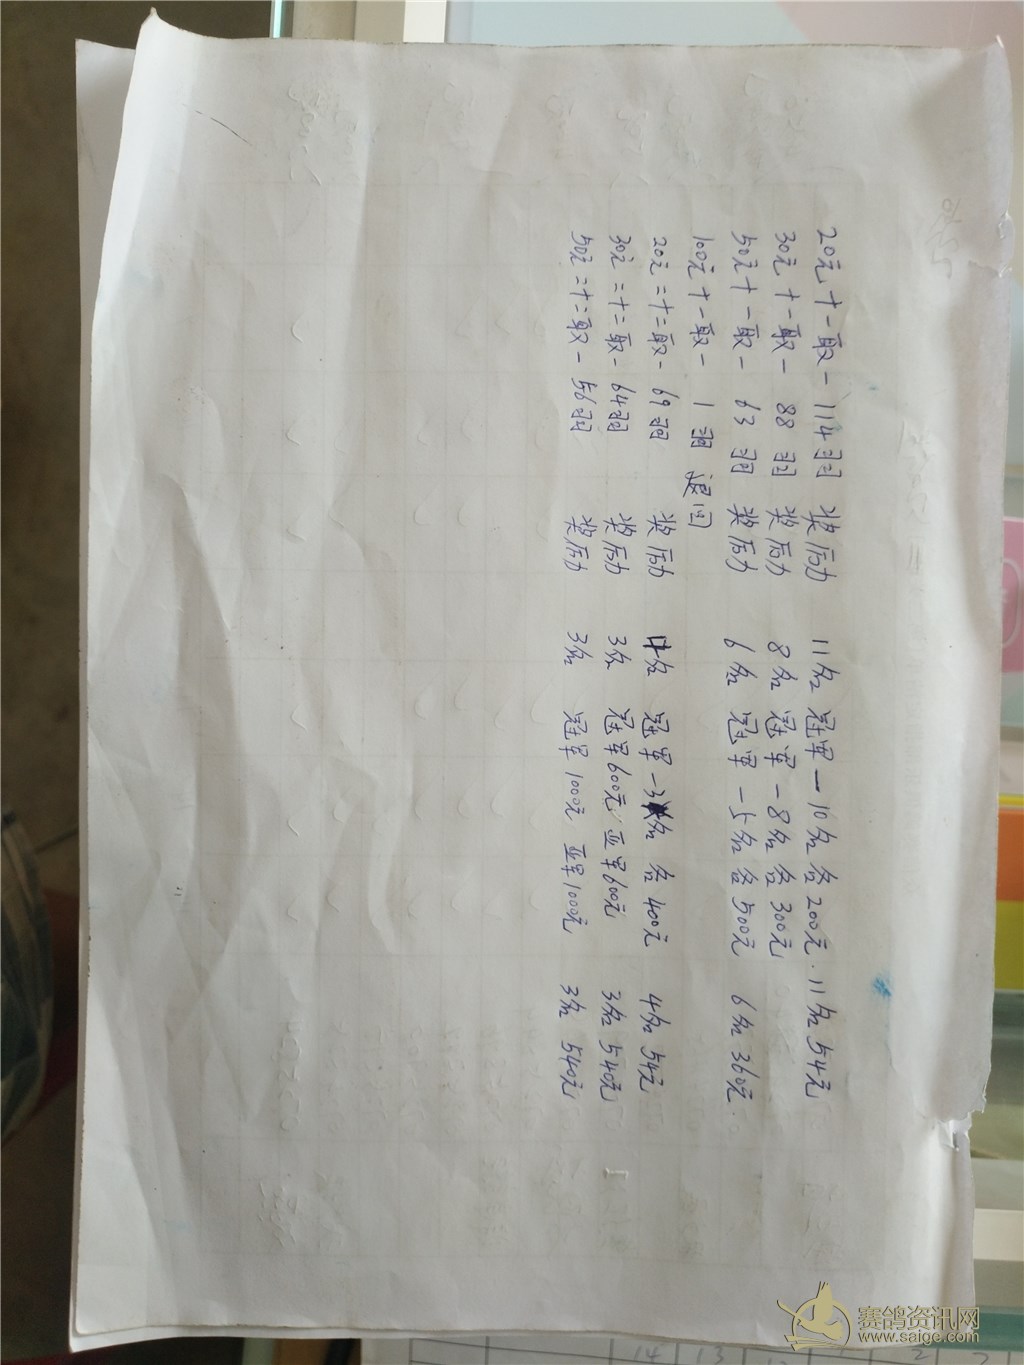 20元十一取一 114羽 奖励 11名 冠军一10名各200元.11名54元
30元十一取一 88羽 奖励 8名 冠军一8名各300元
50元十一取一 63羽 奖励 6名 冠军一5名各500元 6名360元.
100元十一取一 1羽 退回
20元二十二取一 69羽 奖励 4名 冠军一3名各400元 4名54元
30元二十二取一 64羽 奖励 3名 冠军600元 亚军600元 3名540元
50元二十二取一 56羽 奖励 3名 冠军1000元 亚军1000元 3名540元
赛鸽资讯网
www.saige.com
14 13